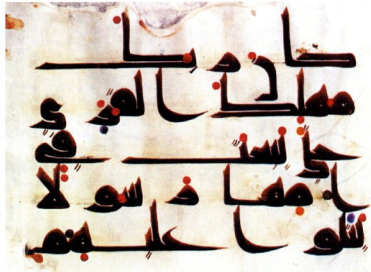 كان ربك
مهلك القرى
حتى يبعث فى
امها رسولا
يتلوا عليهم